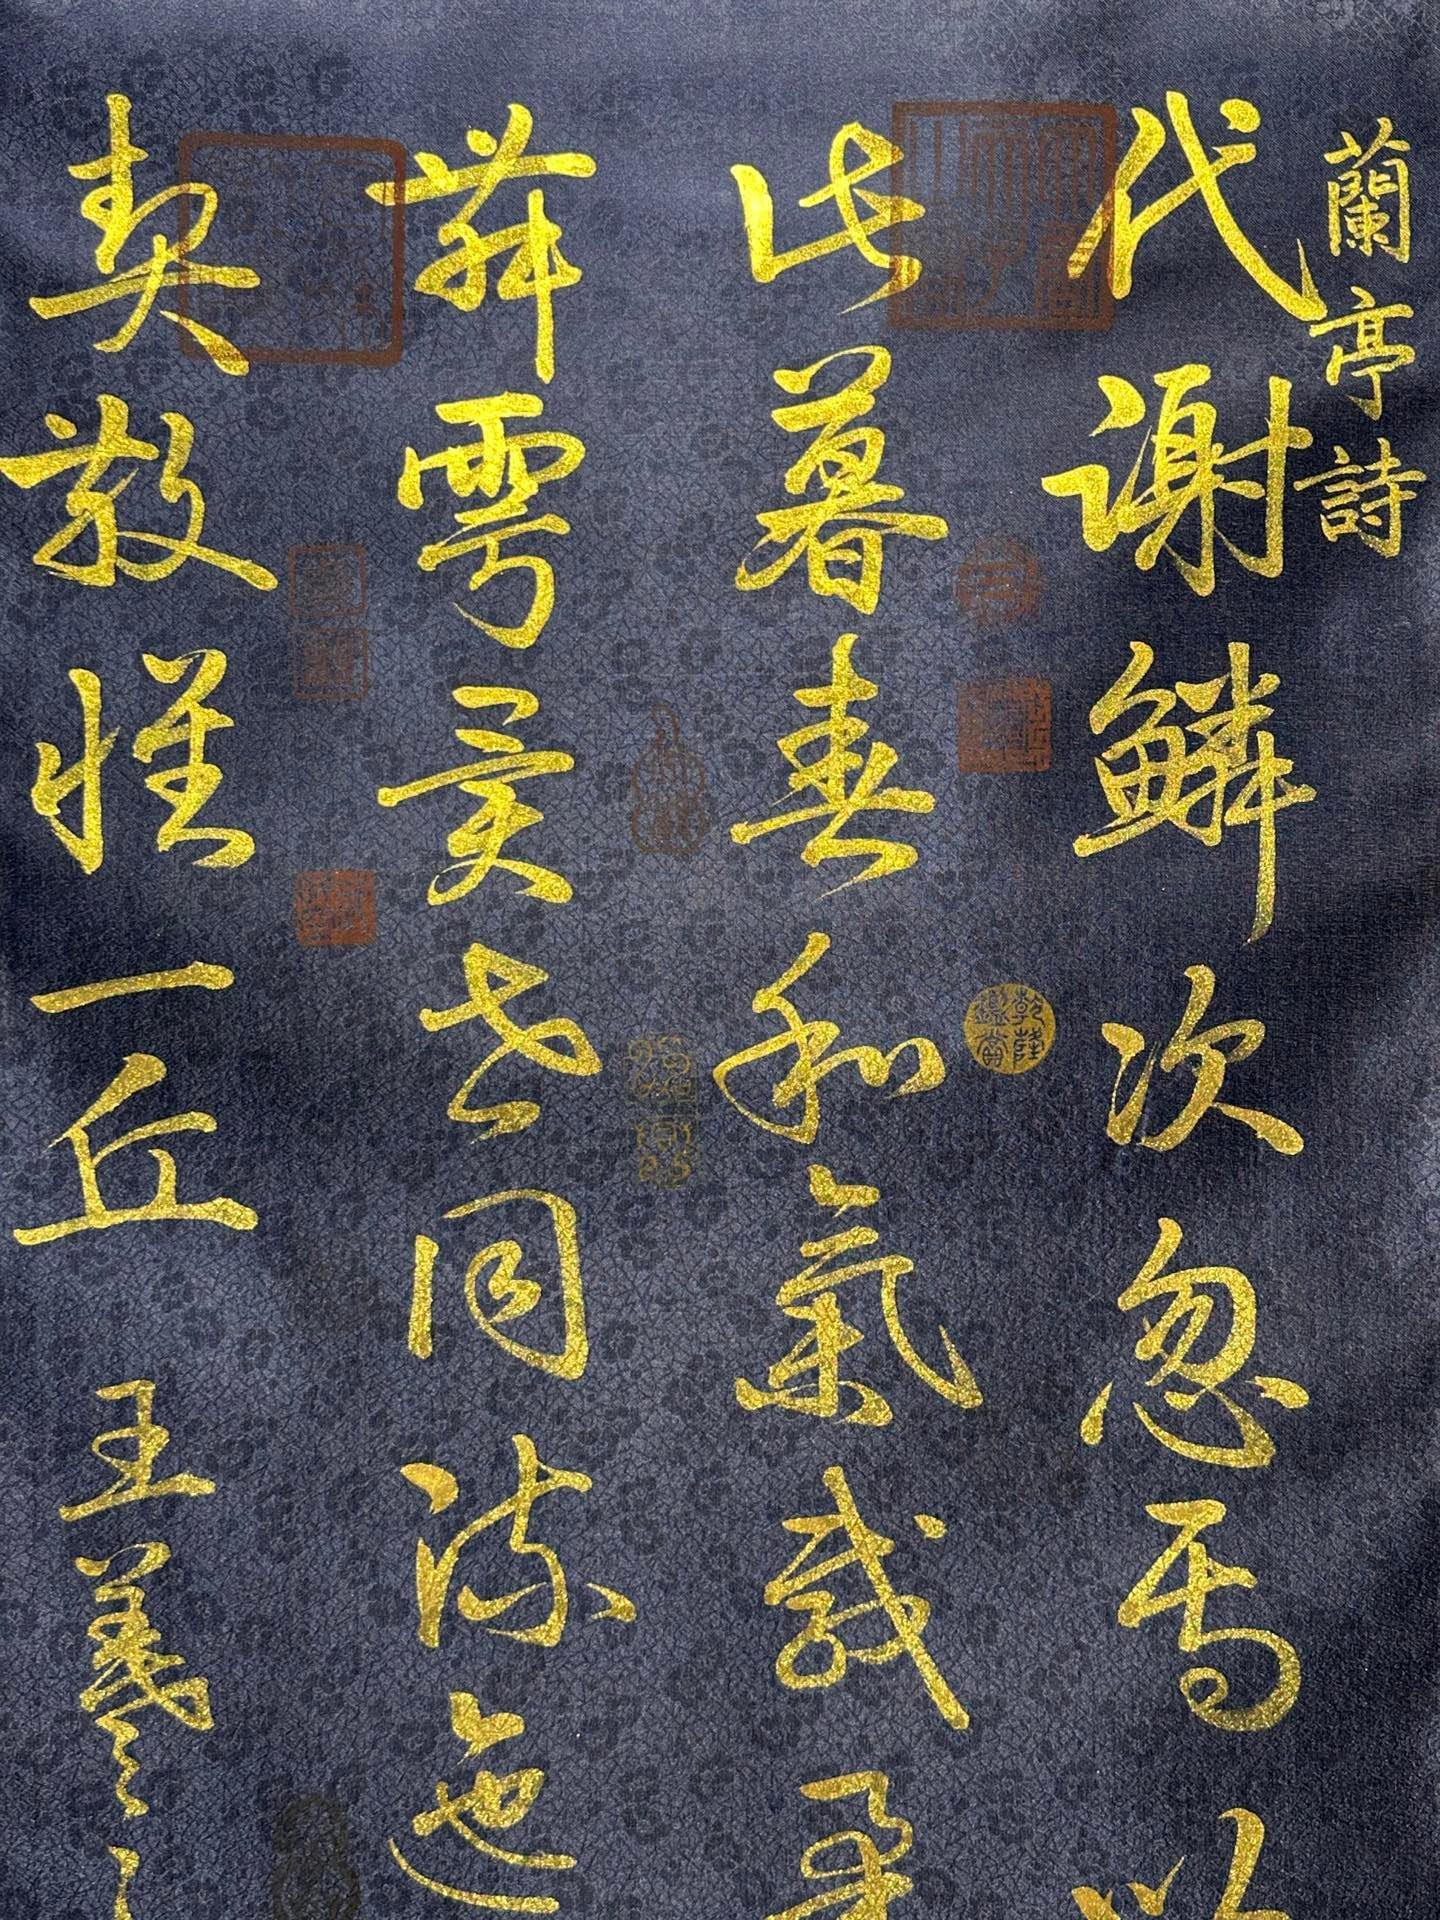 蘭亭詩
代謝鱗次忽焉以
此暮春和氣載柔
舞雩異世同流迤
契散懷一丘
王羲之